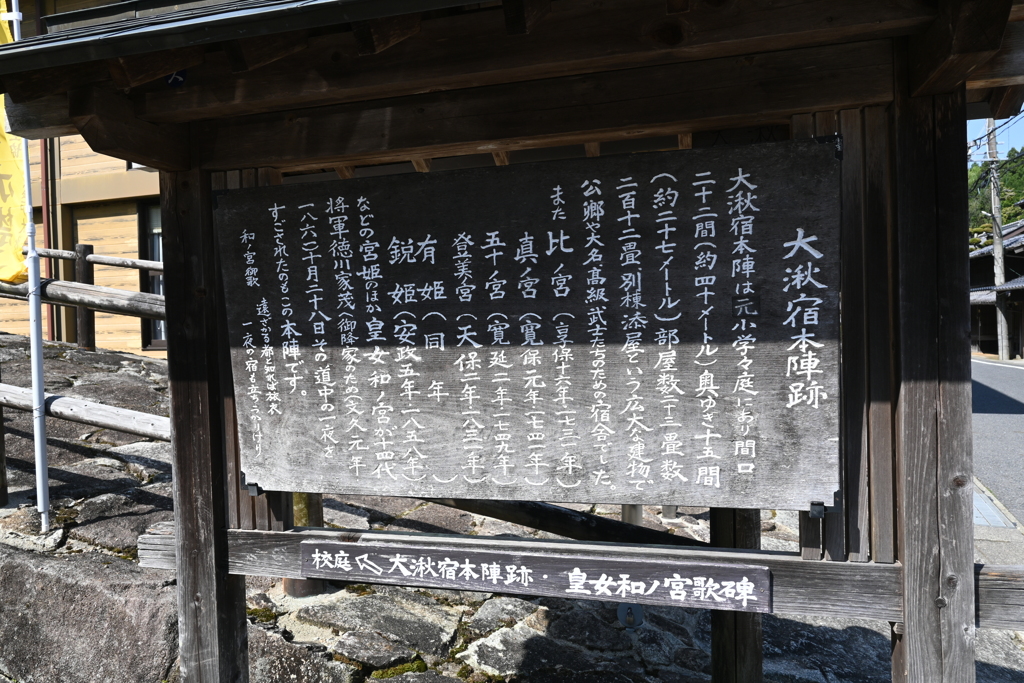 大湫宿本陣跡
大湫宿本陣は元小学々庭にあり間口
二十二間(約四十メートル)奥ゆき十五間
(約二十七メートル)部屋数二十三畳数
二百十二畳別棟添屋という広大な建物で
公卿や大名高級武士たちのための宿舎でした。
また比ノ宮(享保十六年一七三一年)
真ノ宮(寛保元年一七四一年)
五十ノ宮(寛延二年一七四九年)
登美宮(天保二年一八三一年)
有姫(同年)
鋭姫(安政五年一八五八年)
などの宮姫のほか皇女和ノ宮が十四代
将軍徳川家茂へ御降家のため(文久元年
一八六一)十月二十八日その道中の一夜を
すごされたのもこの本陣です。
和ノ宮御歌 遠ざかる都と知れば旅衣
一夜の宿も立ちうかりけり
校庭 大湫宿本陣跡・皇女和ノ宮歌碑